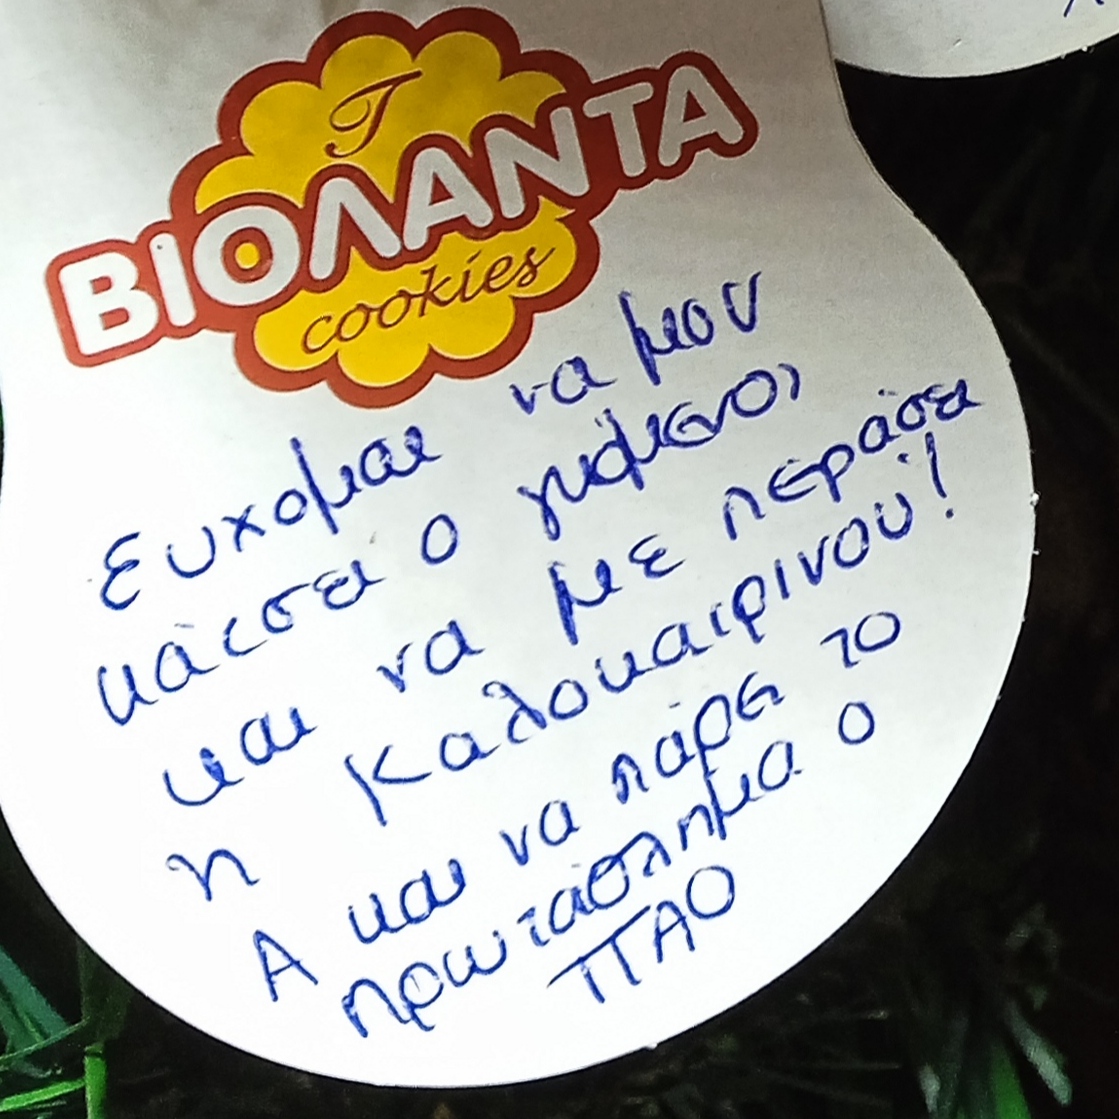 T
ΒΙΟΛΑΝΤΑ
cookies
Ευχομαι να μου
κάτσει ο γκόμενος
και να με περάσει
η Καλοκαιρινού!
Α και να πάρει το
πρωτάθλημα ο
ΠΑΟ